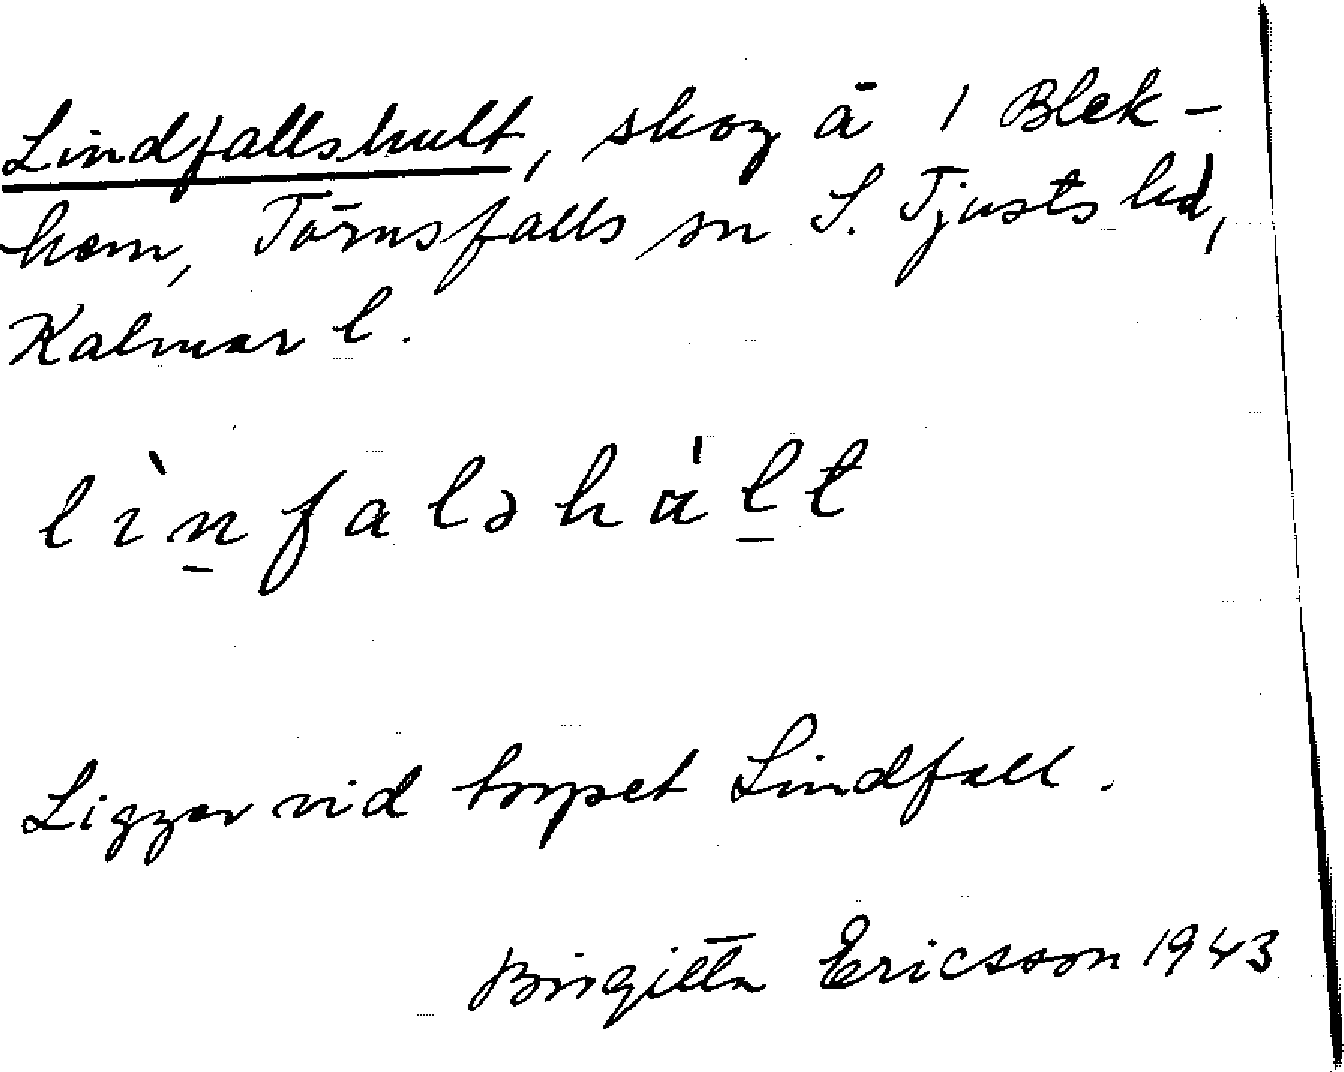 Lindfallshult, skog å 1 Blek-
hem, Törnsfalls sn S. Tjusts hd,
Kalmar l.
lìn̲falshál̲t
Ligger vid torpet Lindfall.
Birgitta Ericsson 1943